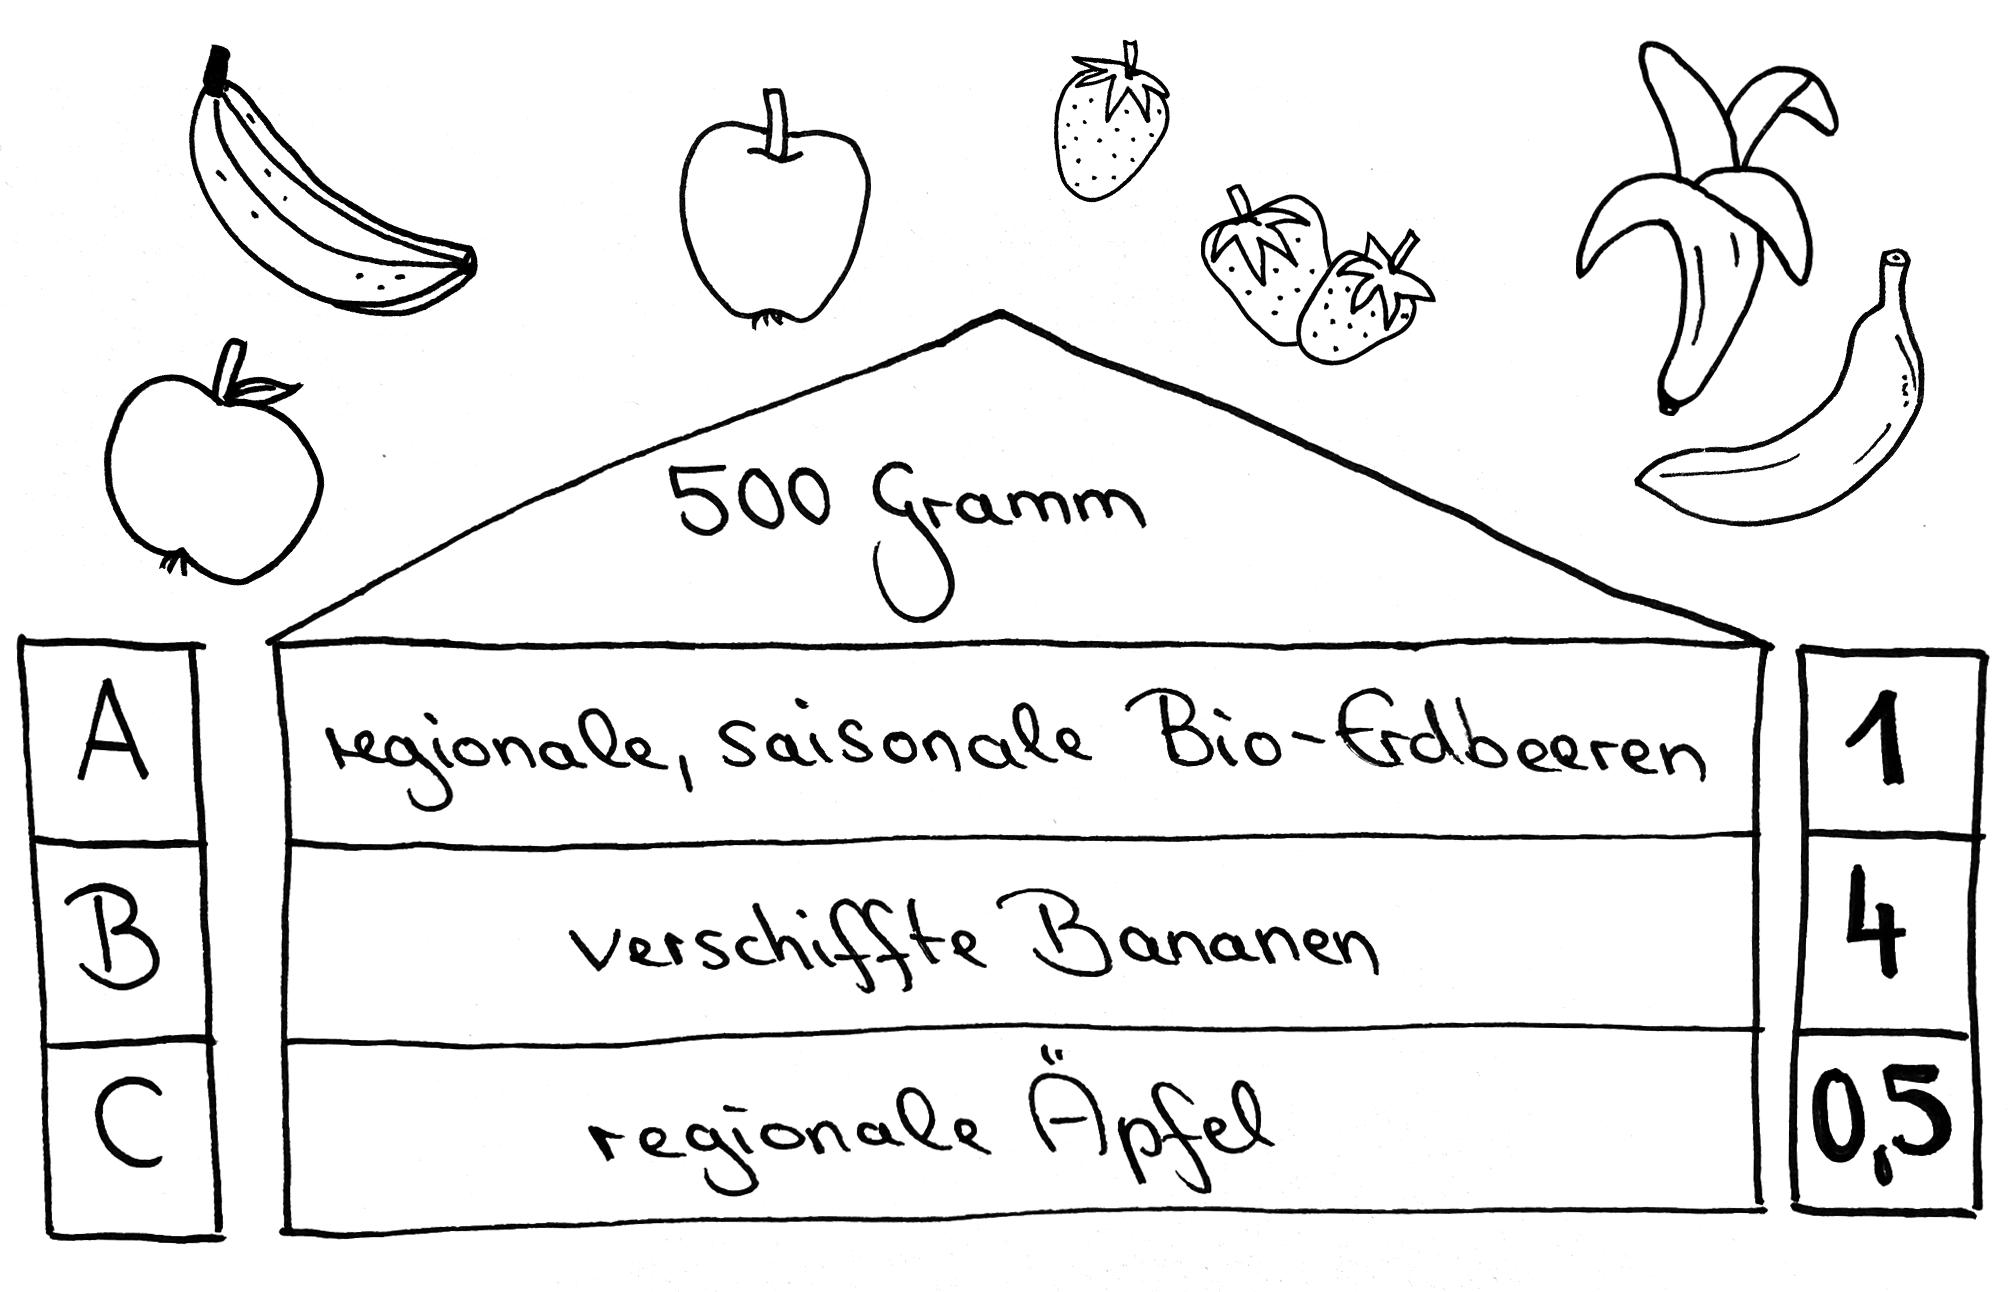 500 Gramm
A regionale, saisonale Bio-Erdbeeren 1
B verschiffte Bananen 4
C regionale Äpfel 0,5